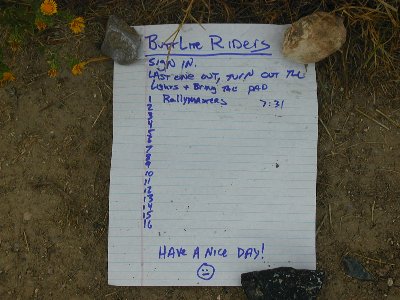 Butt Lite Riders
Sign in.
Last one out, turn out the
Lights + Bring the pad
1 Rallymasters 7:31
2
3
4
5
6
7
8
9
10
11
12
13
14
15
16
Have a nice day!